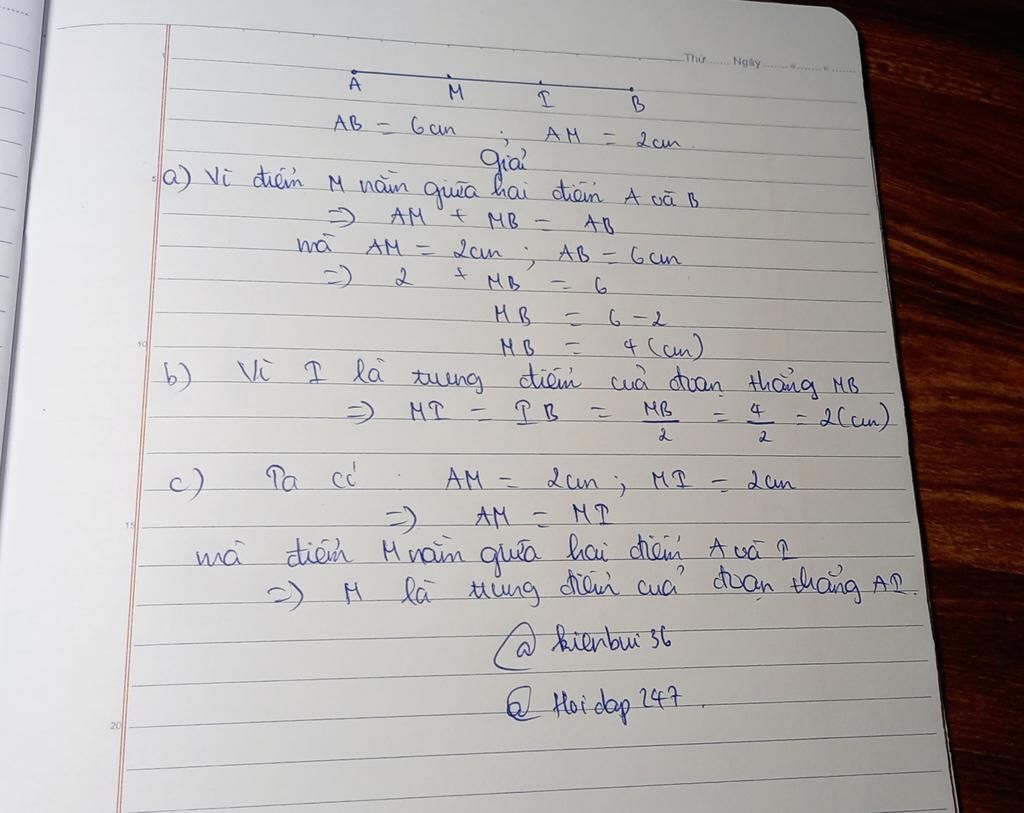 Thứ...... Ngày.......
A M I B
AB = 6cm ; AM = 2cm
Giải
5
a) Vì điểm M nằm giữa hai điểm A và B
=> AM + MB = AB
mà AM = 2cm ; AB = 6cm
=> 2 + MB = 6
MB = 6 - 2
10
MB = 4 (cm)
b) Vì I là trung điểm của đoạn thẳng MB
=> MI = IB = MB/2 = 4/2 = 2(cm)
c) Ta có AM = 2cm ; MI = 2cm
15
=> AM = MI
mà điểm M nằm giữa hai điểm A và I
=> M là trung điểm của đoạn thẳng AI.
@ kienbui36
@ Hoidap247.
20